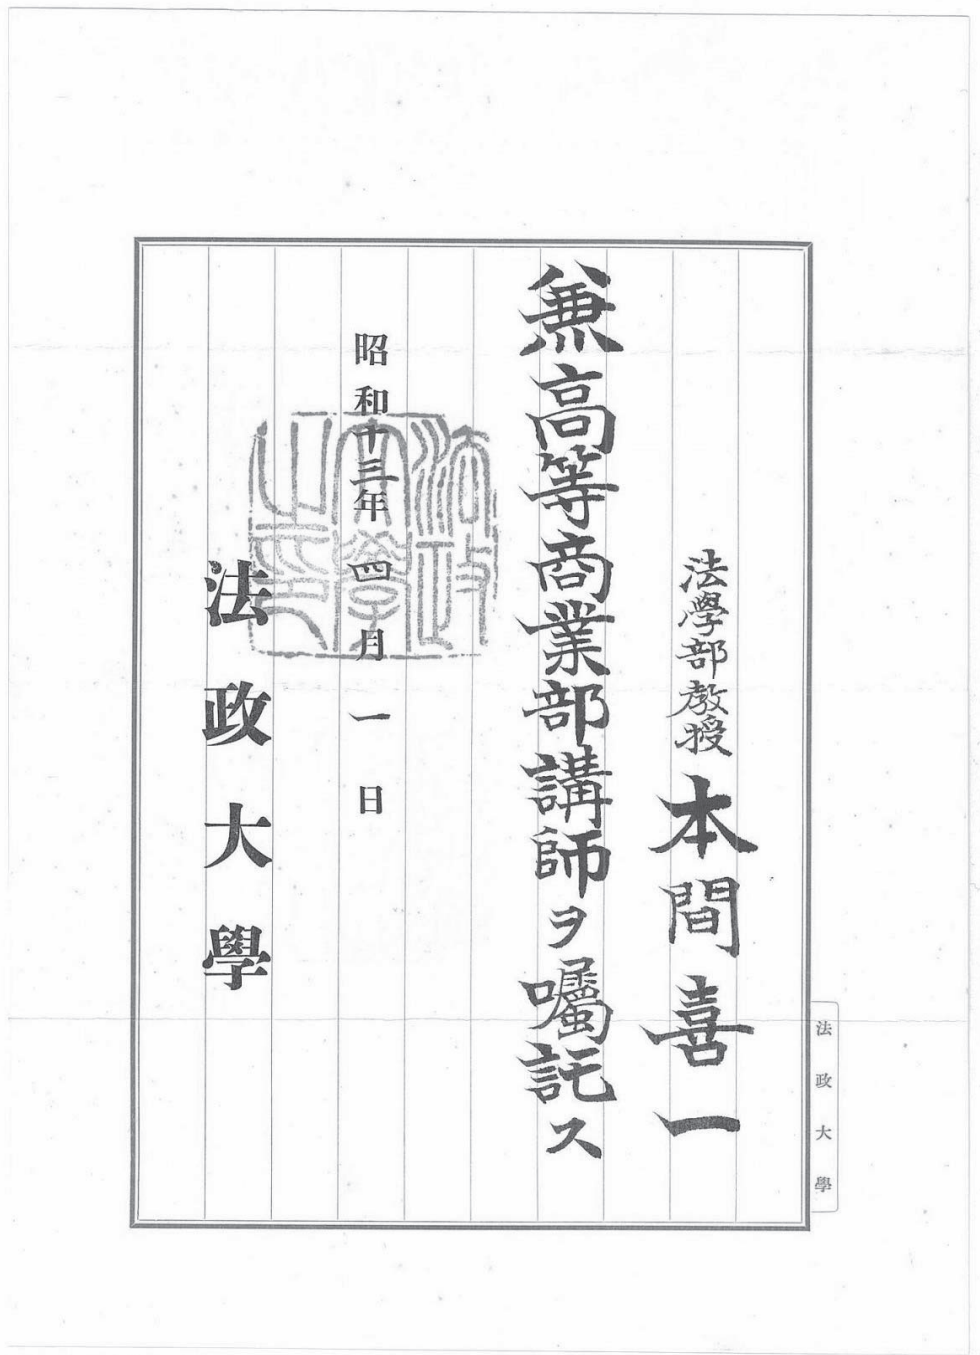 法學部教授 本間喜一
兼高等商業部講師ヲ囑託ス
昭和十三年四月一日
法政大學
法政大學之印
法政大學